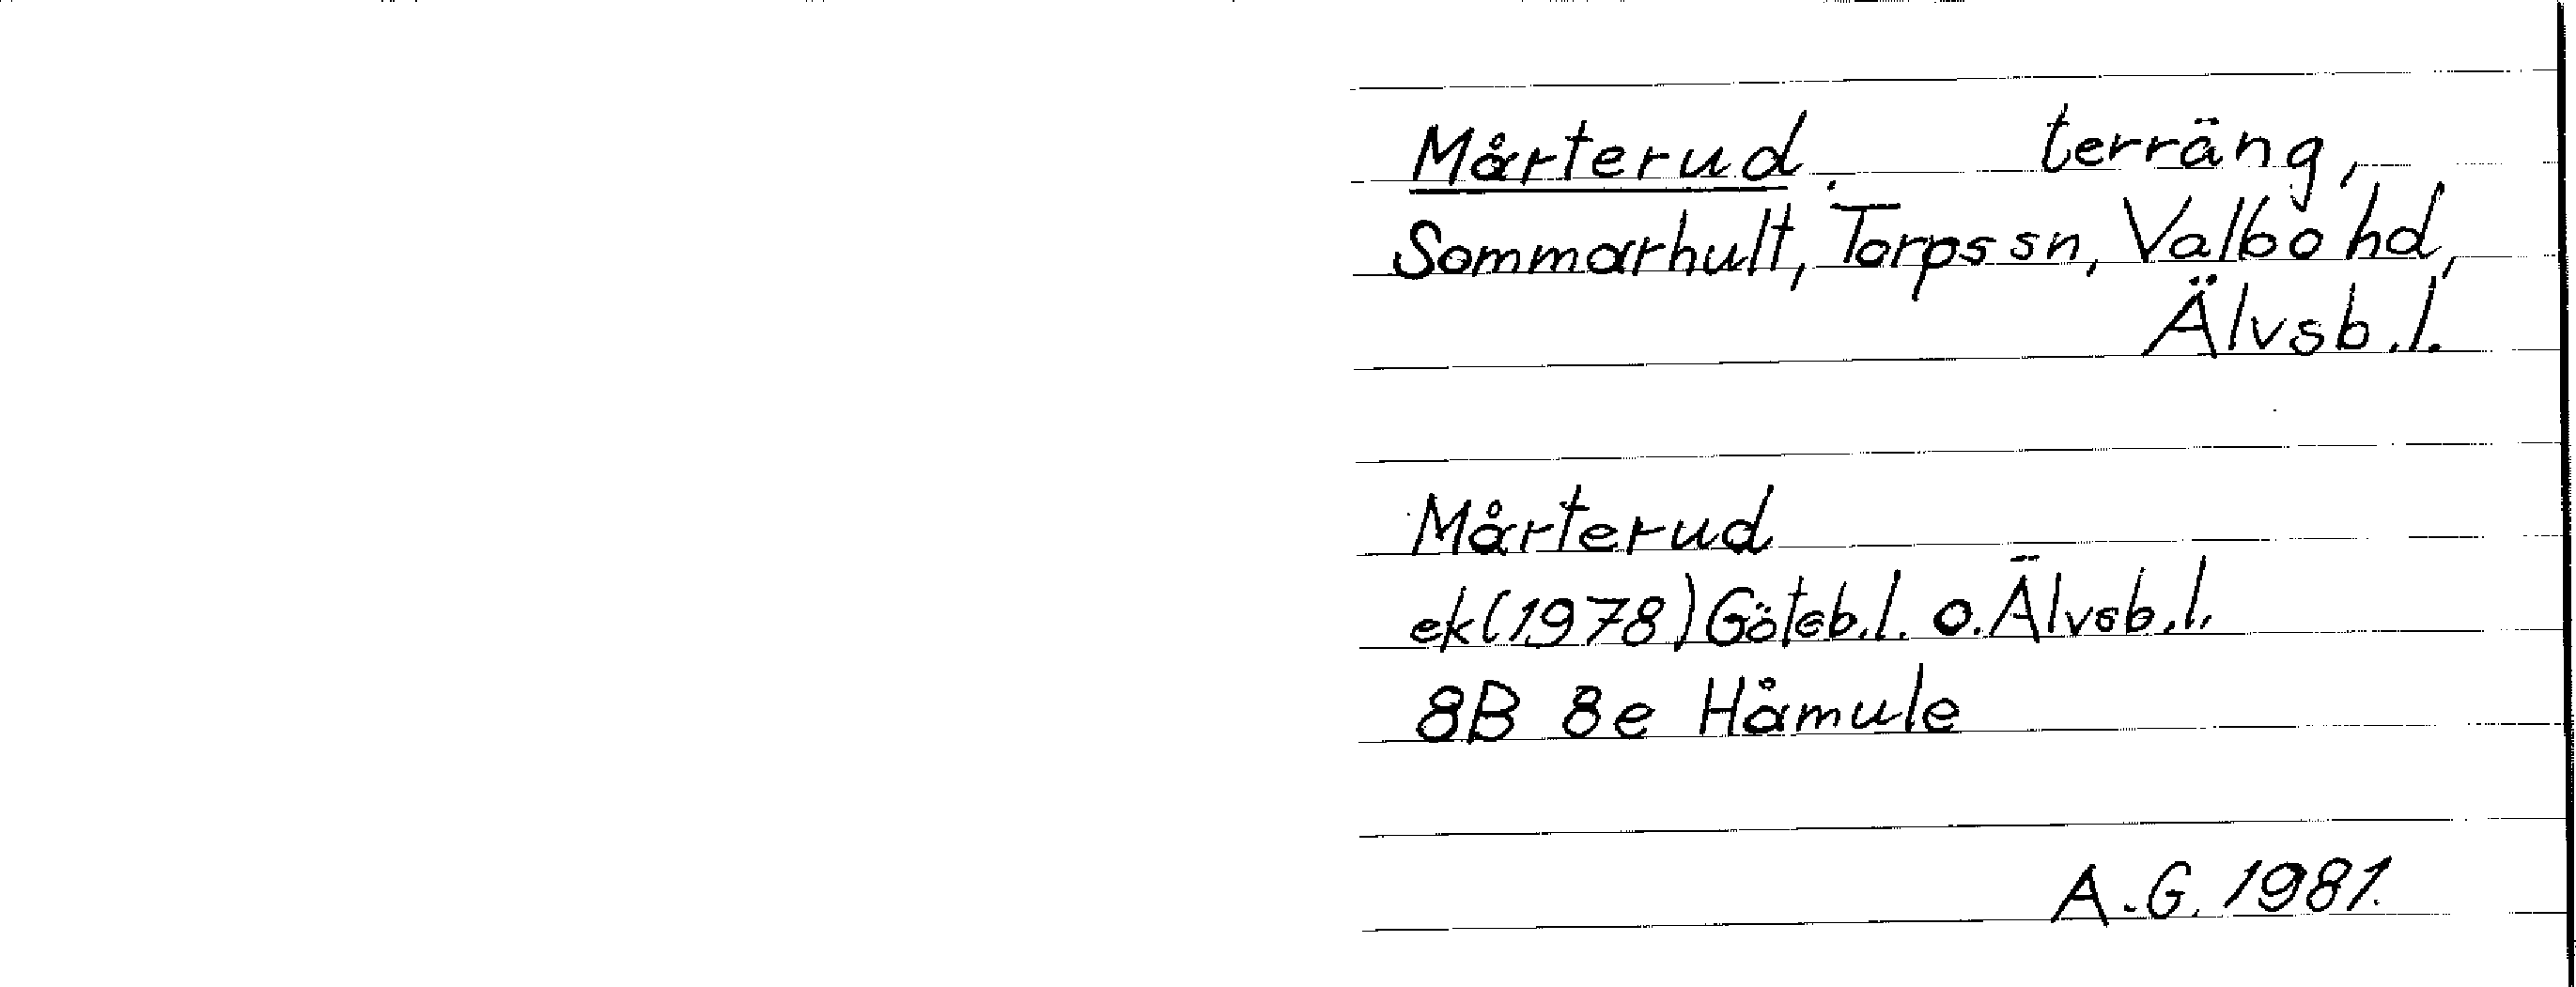 Mårterud. terräng,
Sommarhult, Torps sn, Valbo hd,
Älvsb.l.
Mårterud
ek(1978)Göteb.l. o. Älvsb.l.
8B 8e Håmule
A.G. 1981.